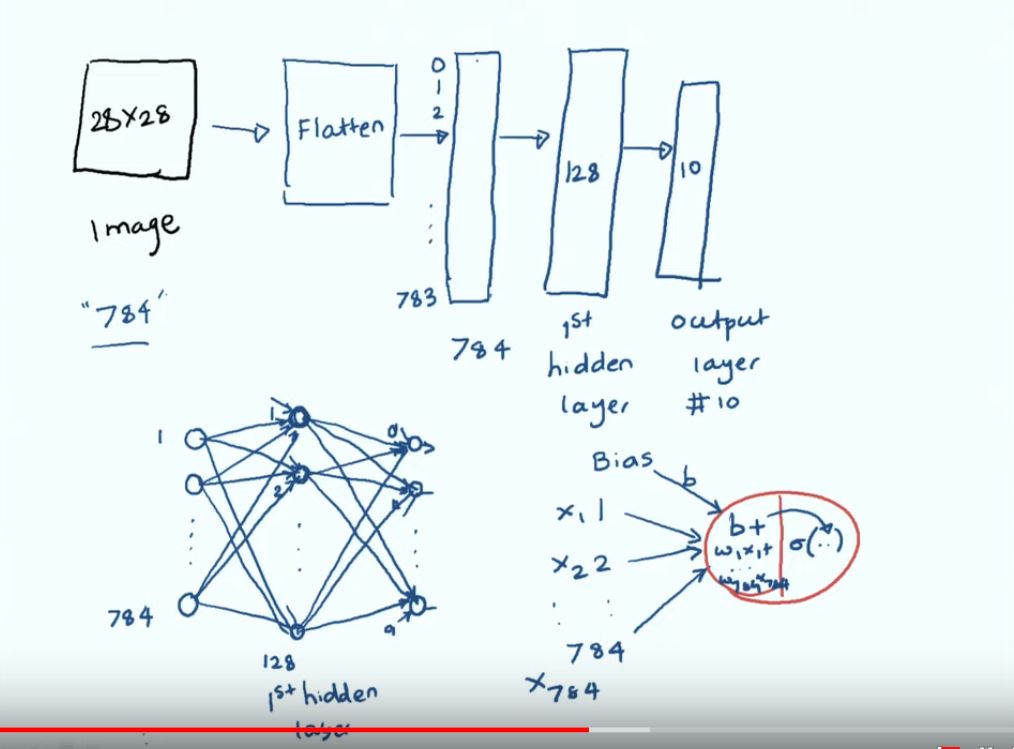 28×28
Image
"784"
Flatten
0
1
2
783
784
128
1st
hidden
layer
10
output
layer
#10
1
784
1
2
128
1st hidden
layer
0
9
Bias
b
x₁ 1
x₂ 2
784
x₇₈₄
b+
w₁x₁+
...
w₇₈₄x₇₈₄
σ(..)